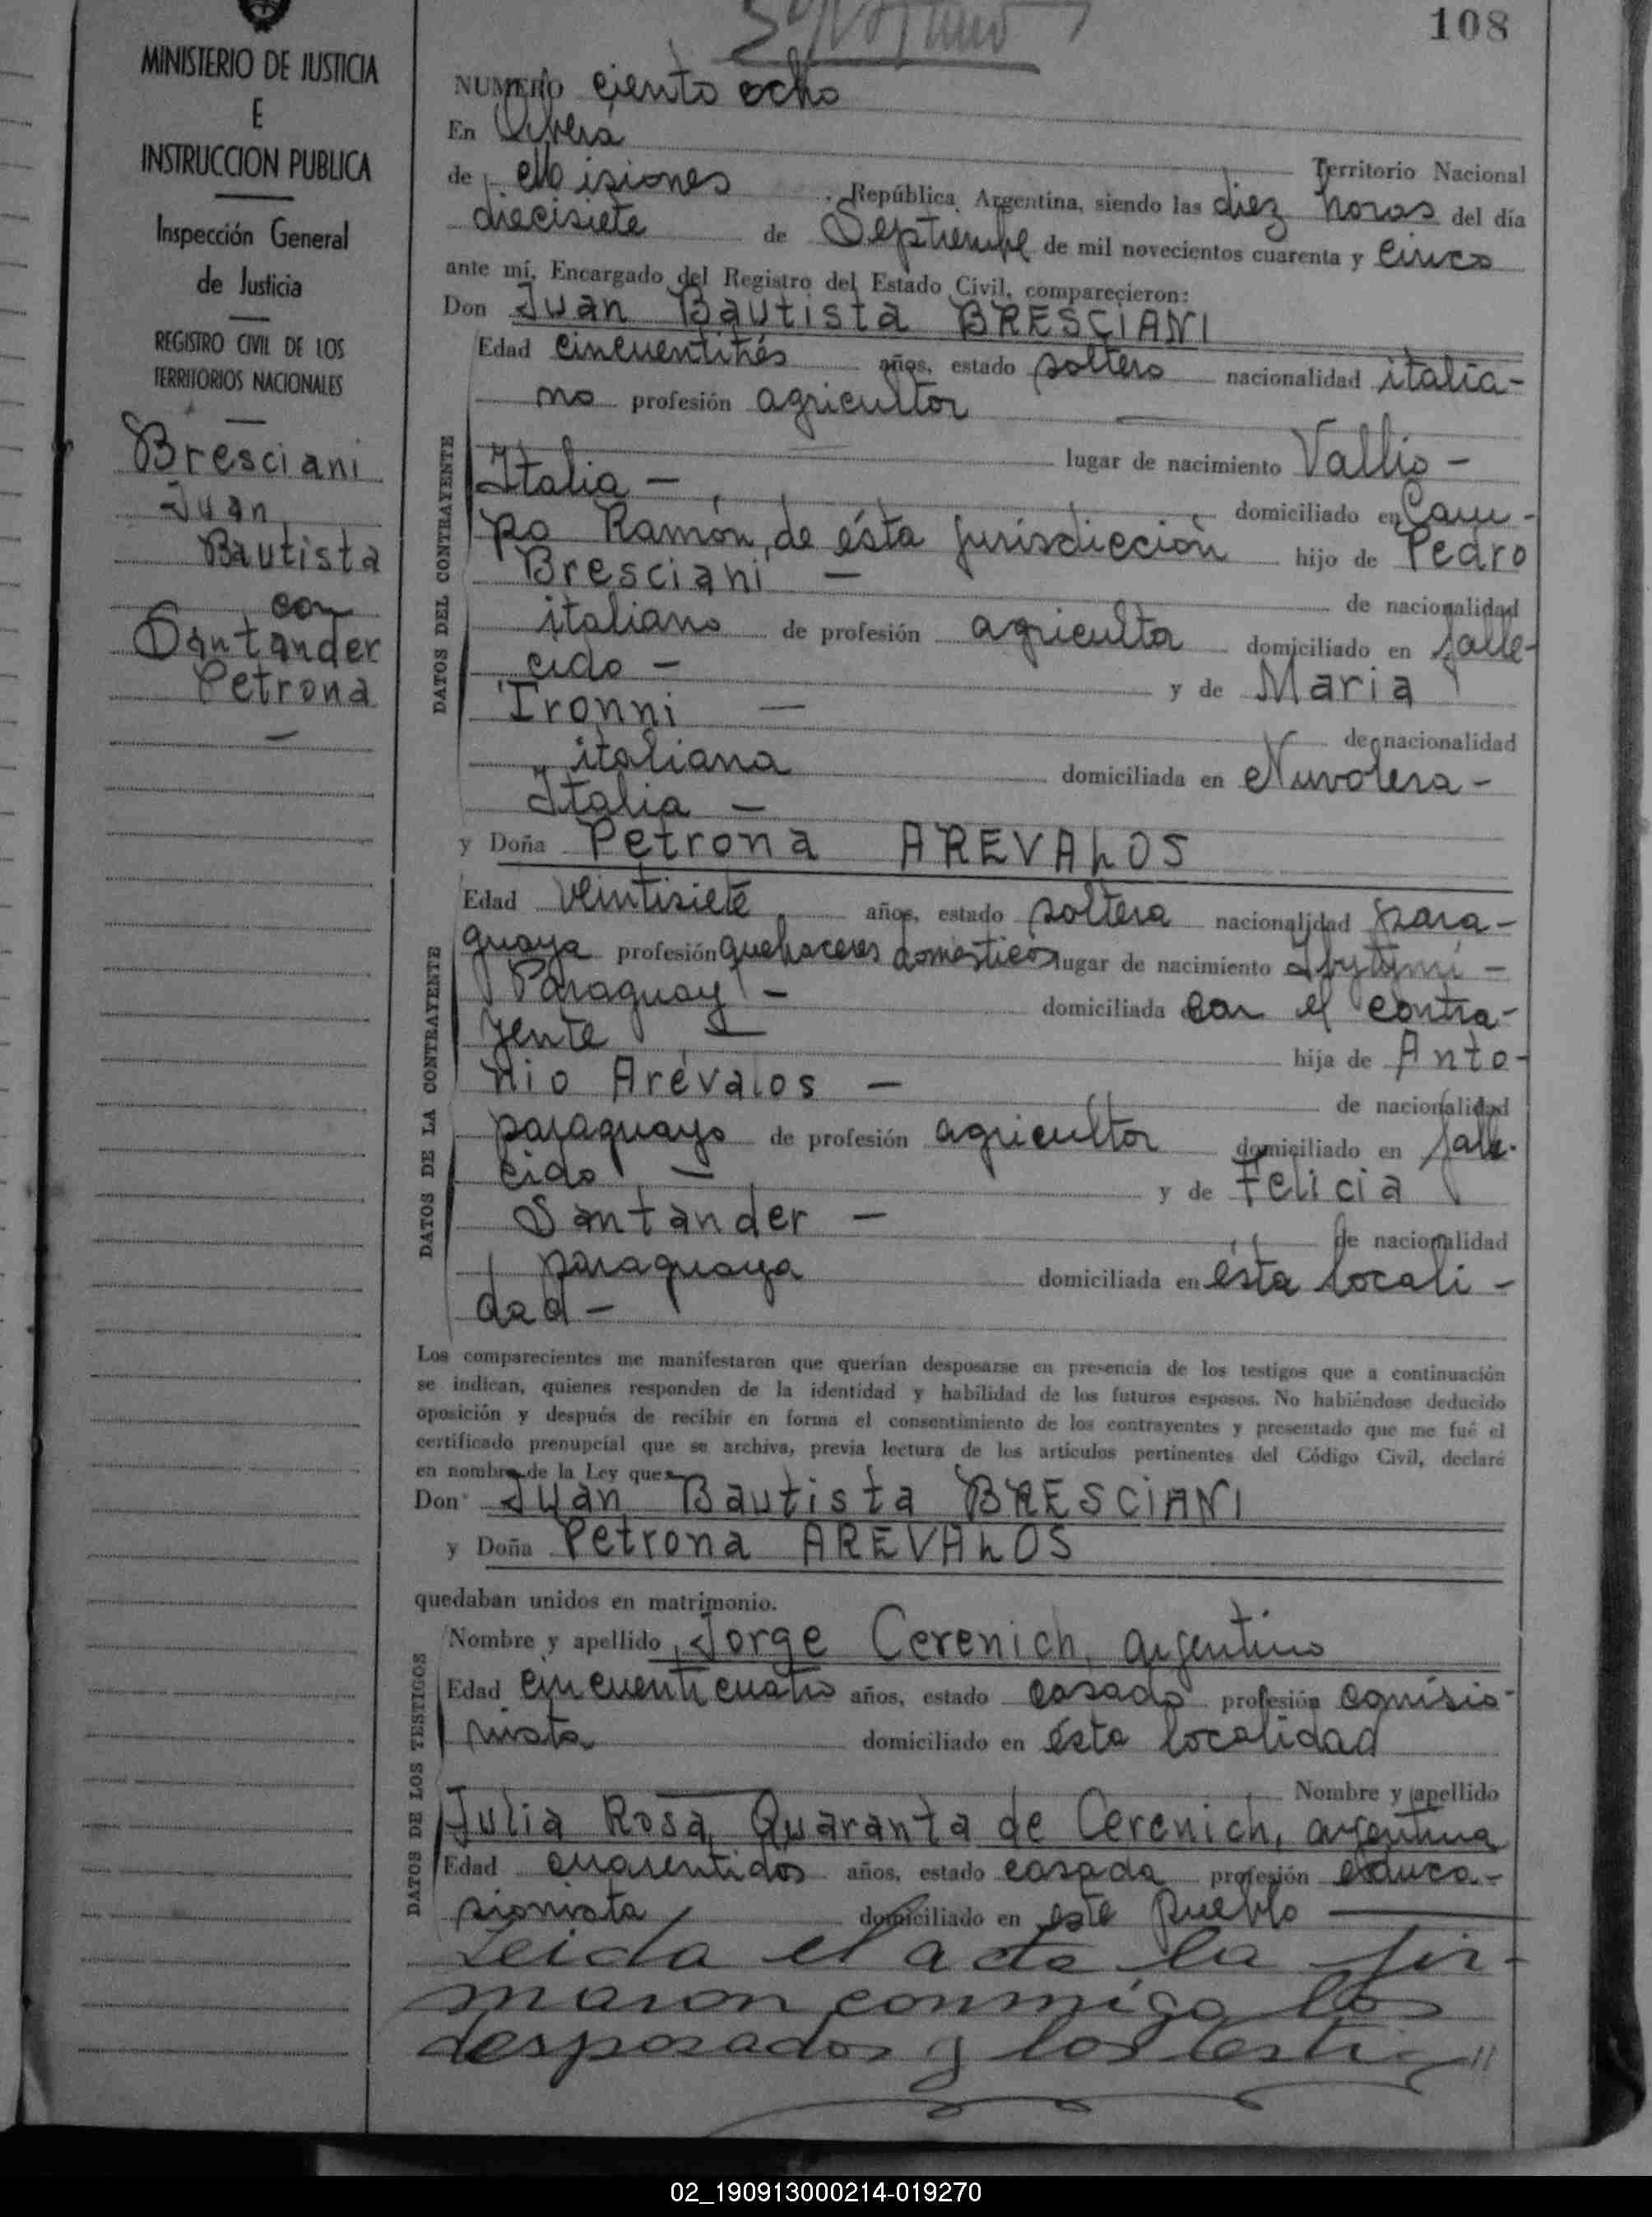 108
MINISTERIO DE JUSTICIA
E
INSTRUCCION PUBLICA
Inspección General
de Justicia
REGISTRO CIVIL DE LOS
TERRITORIOS NACIONALES
Bresciani
Juan
Bautista
con
Santander
Petrona
NUMERO ciento ocho
En Oberá Territorio Nacional
de Misiones República Argentina, siendo las diez horas del día
diecisiete de Septiembre de mil novecientos cuarenta y cinco
ante mí, Encargado del Registro del Estado Civil, comparecieron:
Don Juan Bautista BRESCIANI
DATOS DEL CONTRAYENTE
Edad cincuentitrés años, estado soltero nacionalidad italia-
no profesión agricultor
lugar de nacimiento Vallio -
Italia - domiciliado en Cam-
po Ramón, de ésta jurisdicción hijo de Pedro
Bresciani - de nacionalidad
italiano de profesión agricultor domiciliado en falle-
cido - y de Maria
Tronni - de nacionalidad
italiana domiciliada en Nuvolera -
Italia -
y Doña Petrona AREVALOS
DATOS DE LA CONTRAYENTE
Edad veintisiete años, estado soltera nacionalidad para-
guaya profesión quehaceres domésticos lugar de nacimiento
Paraguay - domiciliada con el contra-
yente - hija de Anto-
nio Arévalos - de nacionalidad
paraguayo de profesión agricultor domiciliado en falle-
cido - y de Felicia
Santander - de nacionalidad
paraguaya domiciliada en ésta locali-
dad -
Los comparecientes me manifestaron que querían desposarse en presencia de los testigos que a continuación
se indican, quienes responden de la identidad y habilidad de los futuros esposos. No habiéndose deducido
oposición y después de recibir en forma el consentimiento de los contrayentes y presentado que me fué el
certificado prenupcial que se archiva, previa lectura de los artículos pertinentes del Código Civil, declaré
en nombre de la Ley que:
Don Juan Bautista BRESCIANI
y Doña Petrona AREVALOS
quedaban unidos en matrimonio.
DATOS DE LOS TESTIGOS
Nombre y apellido Jorge Cerenich, argentino
Edad cincuenticuatro años, estado casado profesión comisio-
nista domiciliado en ésta localidad
Nombre y apellido
Julia Rosa Quaranta de Cerenich, argentina
Edad cuarentidos años, estado casada profesión educa-
sionista domiciliado en este pueblo
Leida el acta la fir-
maron conmigo los
desposados y los testig//
02_190913000214-019270